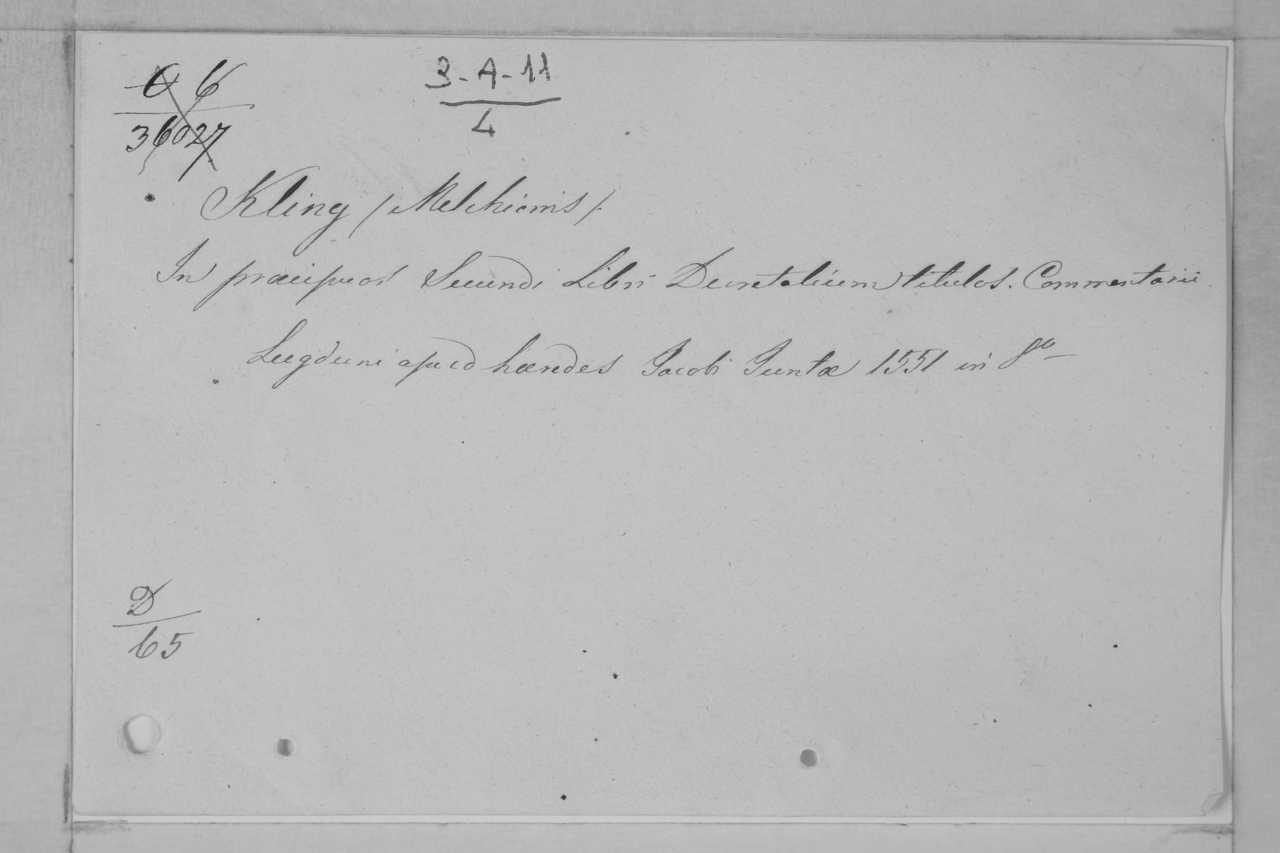 6 6
36027
3-A-11
4
Kling (Melchioris).
In præcipuos Secundi Libri Decretalium titulos. Commentarii.
Lugduni apud hæredes Jacobi Juntæ 1551 in 8º
D
65